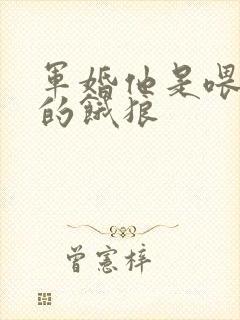 軍婚他是喂
的餓狼
曾憲梓